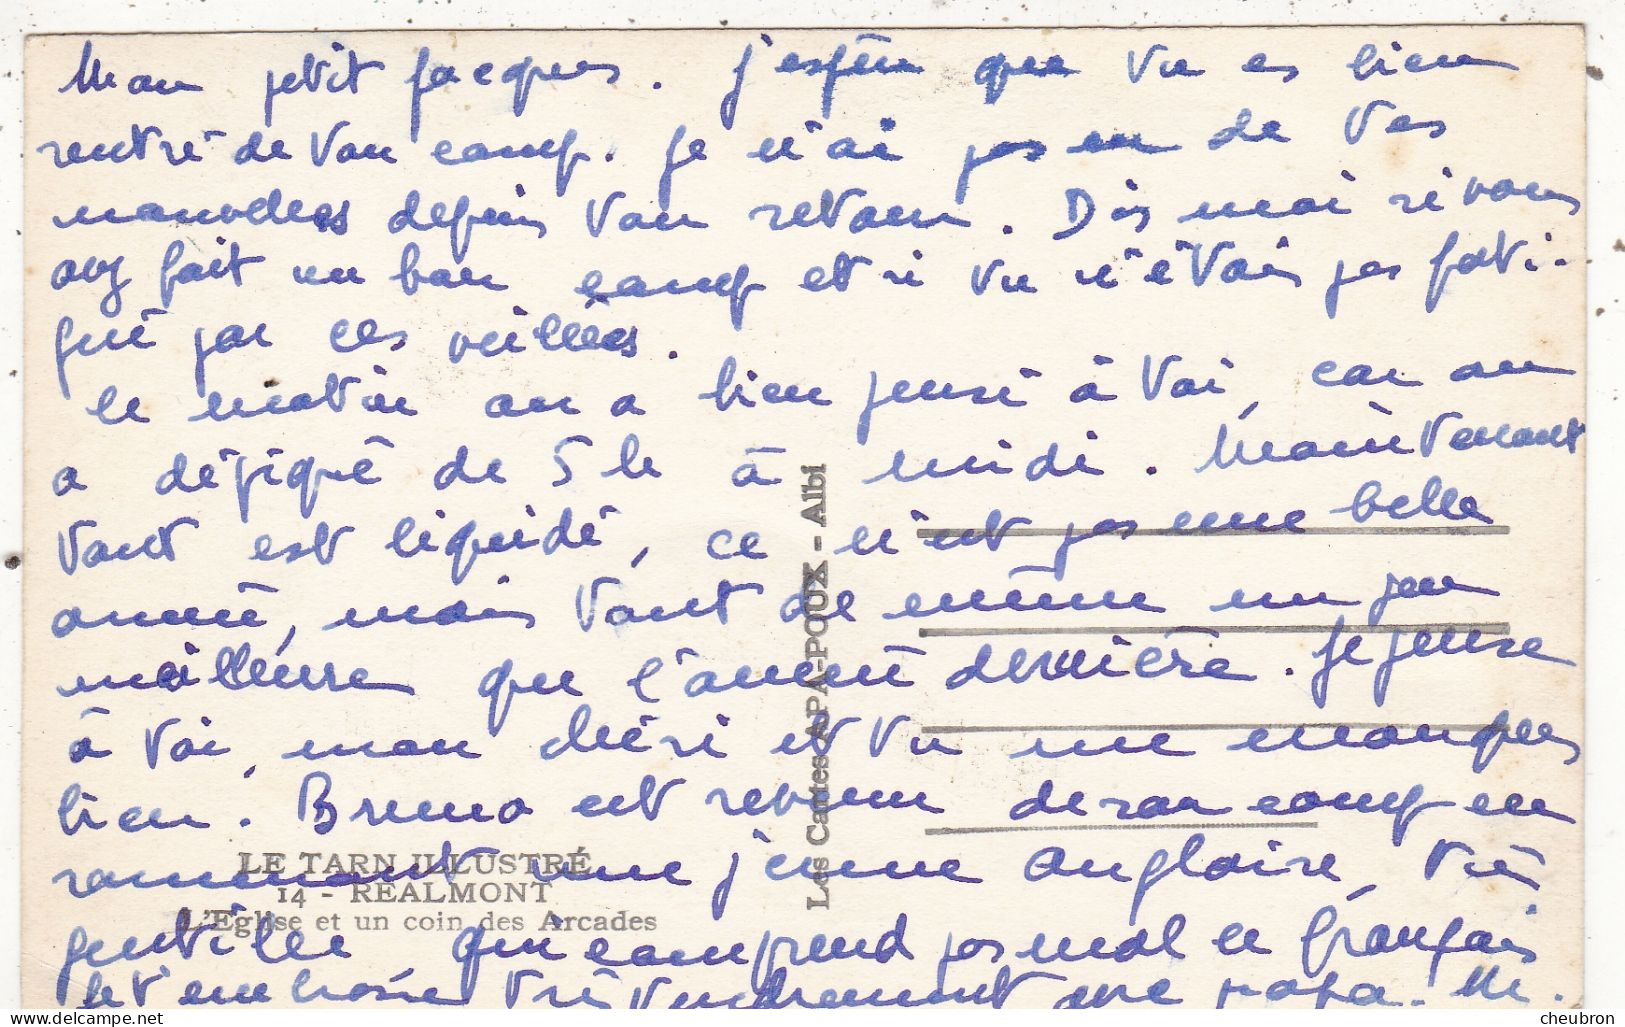 Mon petit Jacques. J'espère que tu es bien
rentré de ton camp. Je n'ai pas eu de tes
nouvelles depuis ton retour. Dis moi si vous
avez fait un bon camp et si tu n'étais pas fati-
gué par ces veillées.
Ce matin on a bien pensé à toi, car on
a défiqué de 5 h à midi. Maintenant
tout est liquidé, ce n'est pas une belle
année, mais tout de même un peu
meilleure que l'année dernière. Je pense
à toi, mon chéri et tu me manques
bien. Bruno est revenu de son camp en
ramenant une jeune anglaise, très
gentille, qui comprend pas mal le français
Je t'embrasse très tendrement avec papa. M.
LE TARN ILLUSTRÉ
14 - REALMONT
L'Eglise et un coin des Arcades
Les Cartes APA-POUX - Albi
cheubron